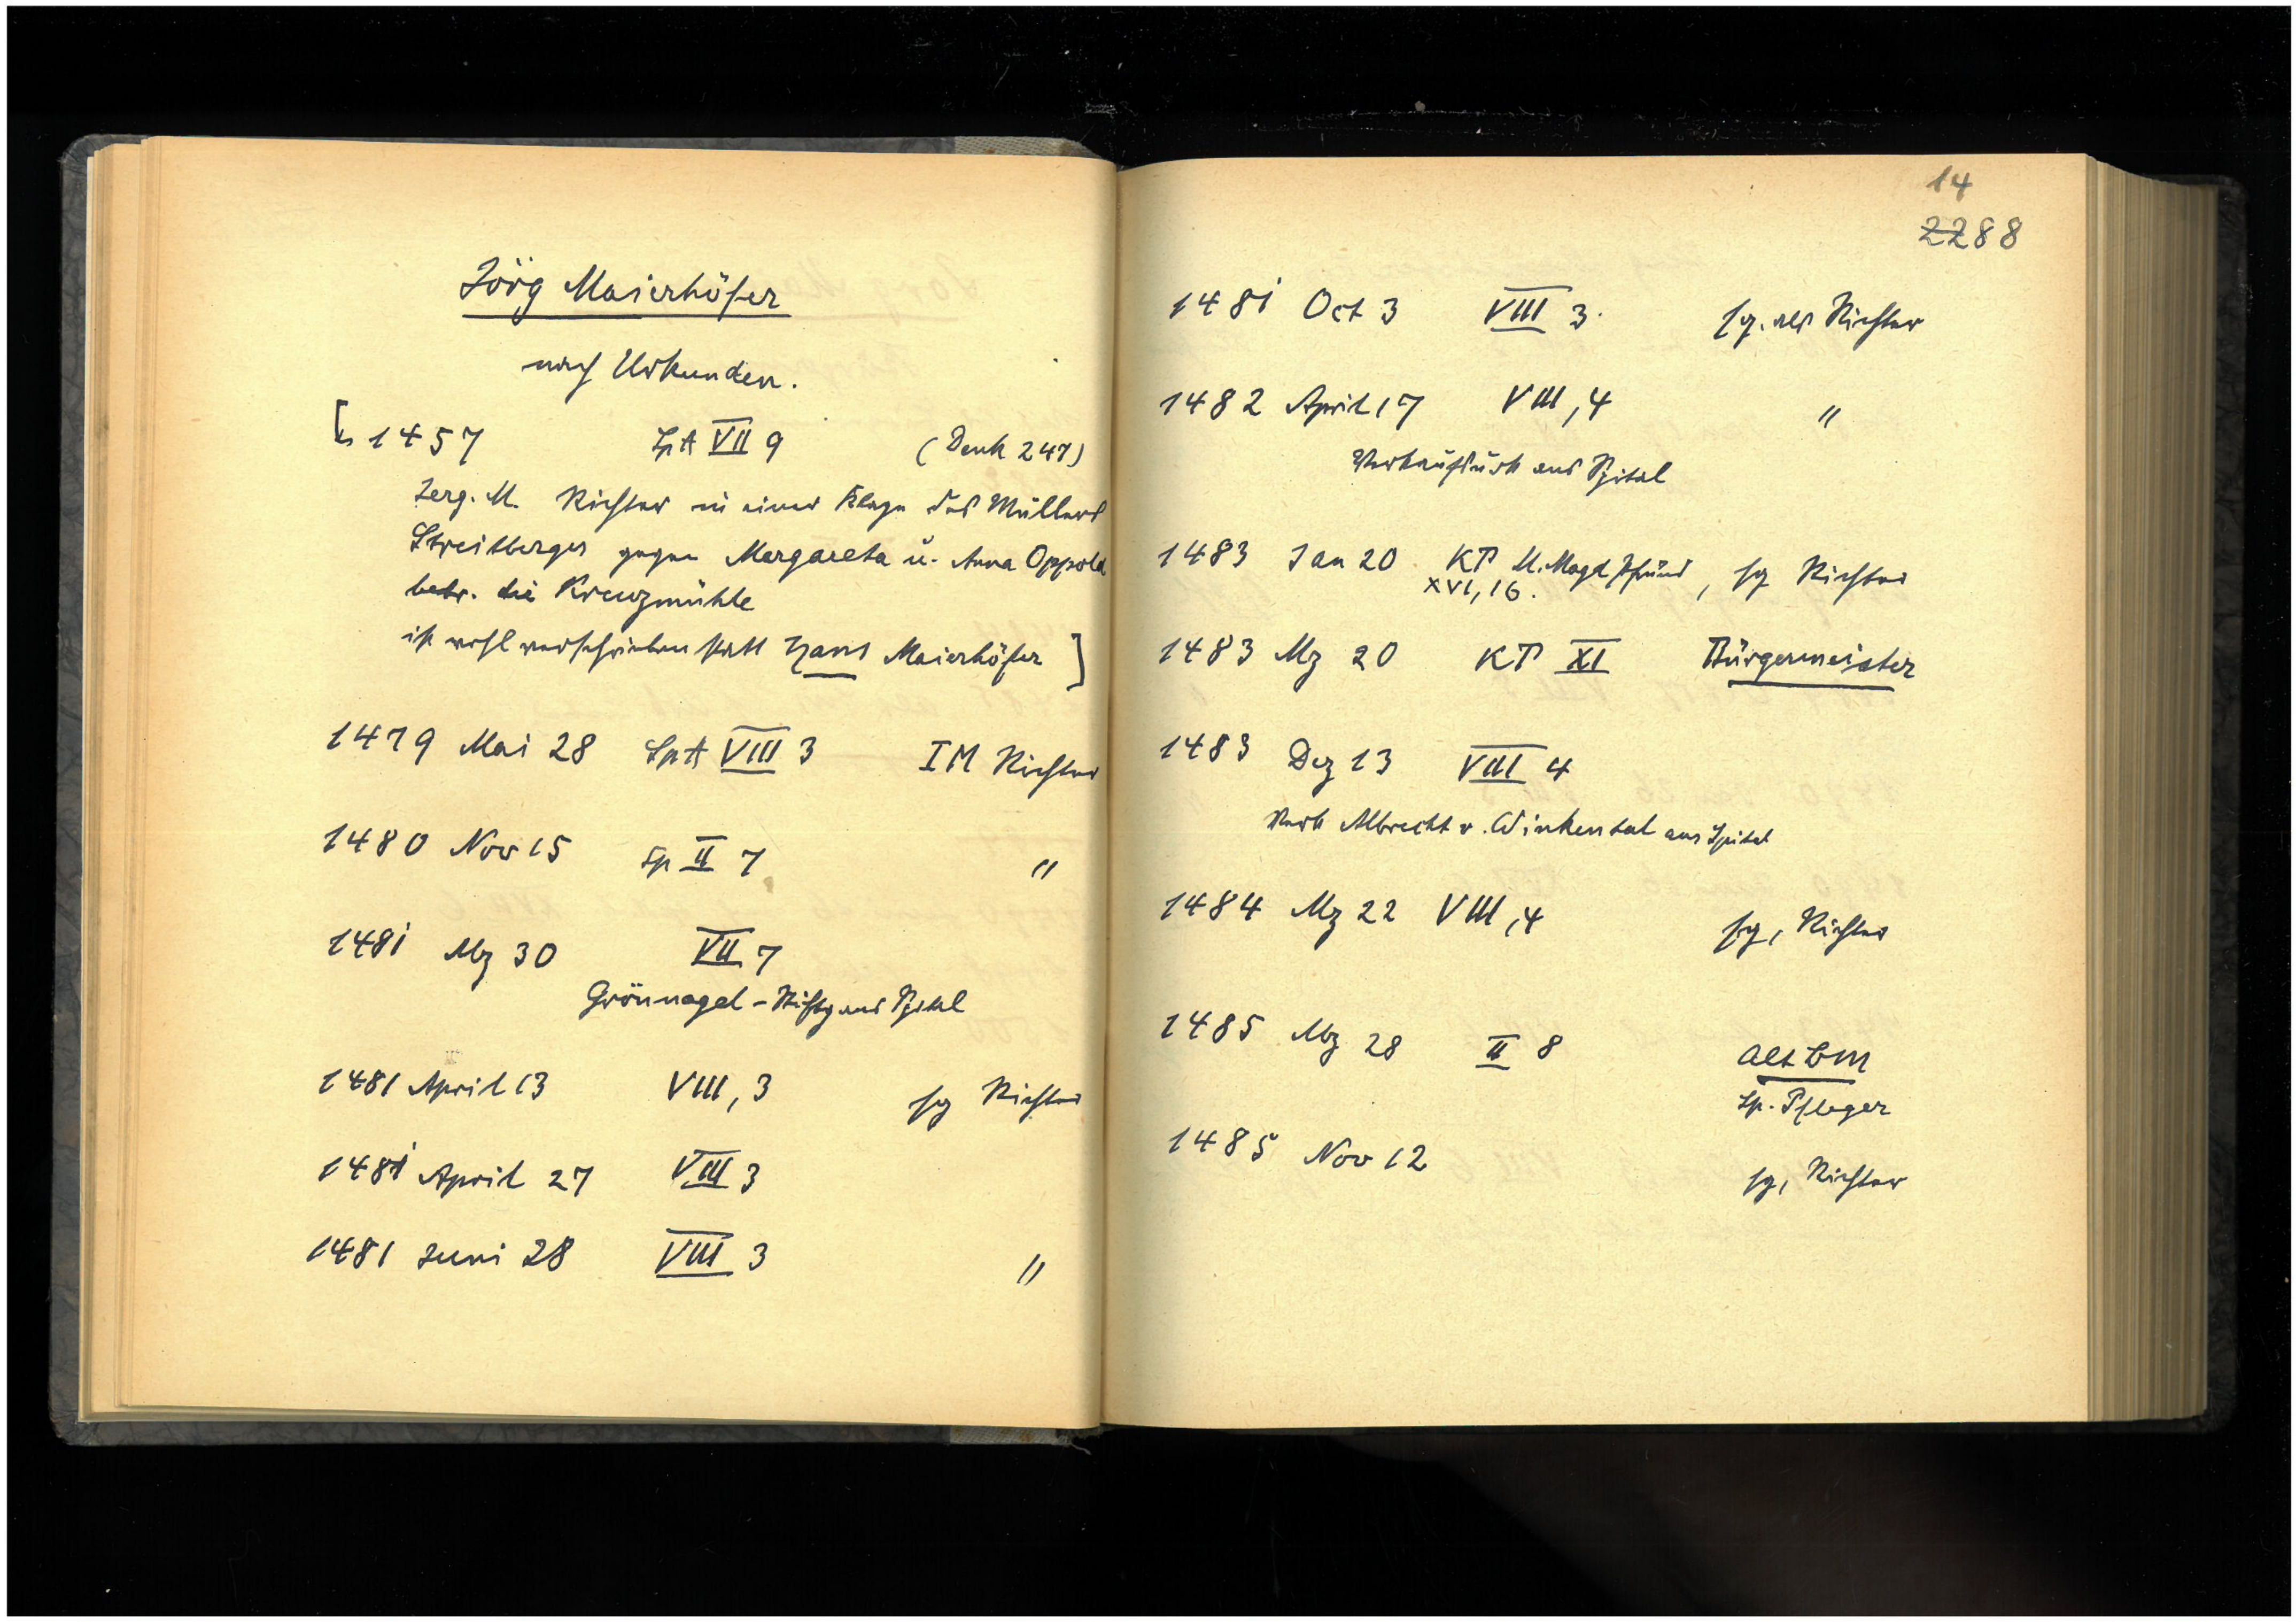 Jörg Maierhöfer
nach Urkunden.
1457 SpA VII 9 (Denk 247)
Jerg. M. Richter in einer Klage des Müllers
Streitberger gegen Margareta u. Anna Oppold
betr. die Kreuzmühle
ist wohl verschrieben statt Hans Maierhöfer ]
1479 Mai 28 SpA VIII 3 IM Richter
1480 Nov 15 Sp II 7 "
1481 Mz 30 VII 7
Grönnagel - Stiftg ans Spital
1481 April 13 VIII, 3 sg Richter
1481 April 27 VIII 3
1481 Juni 28 VIII 3 "
14
2288
1481 Oct 3 VIII 3. sg. als Richter
1482 April 17 VIII, 4 "
Verkaufsurk ans Spital
1483 Jan 20 KP M. Magd Pfründ, sg Richter
XVI, 16.
1483 Mz 20 KP XI Bürgermeister
1483 Dez 13 VIII 4
Verk Albrecht v. Winkental ans Spital
1484 Mz 22 VIII, 4 sg, Richter
1485 Mz 28 II 8 Alt BM
Sp. Pfleger
1485 Nov 12 sg, Richter